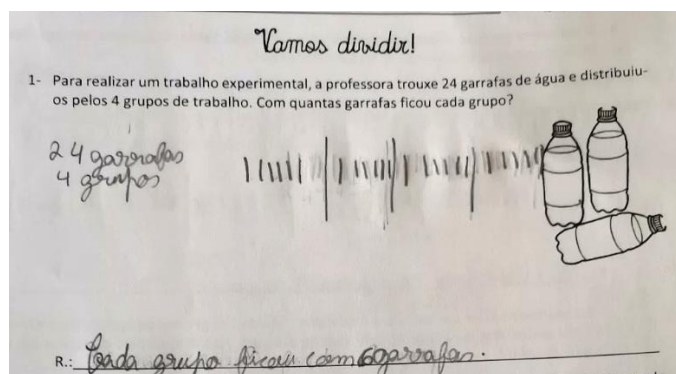 Vamos dividir!
1- Para realizar um trabalho experimental, a professora trouxe 24 garrafas de água e distribuiu-
os pelos 4 grupos de trabalho. Com quantas garrafas ficou cada grupo?
24 garrafas
4 grupos
R.: Cada grupo ficou com 6 garrafas.